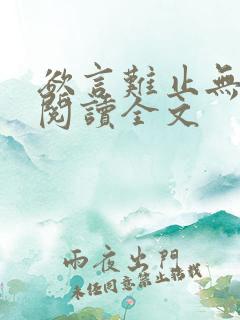 欲言難止無
閱讀全文
雨夜出門
未經同意禁止轉載